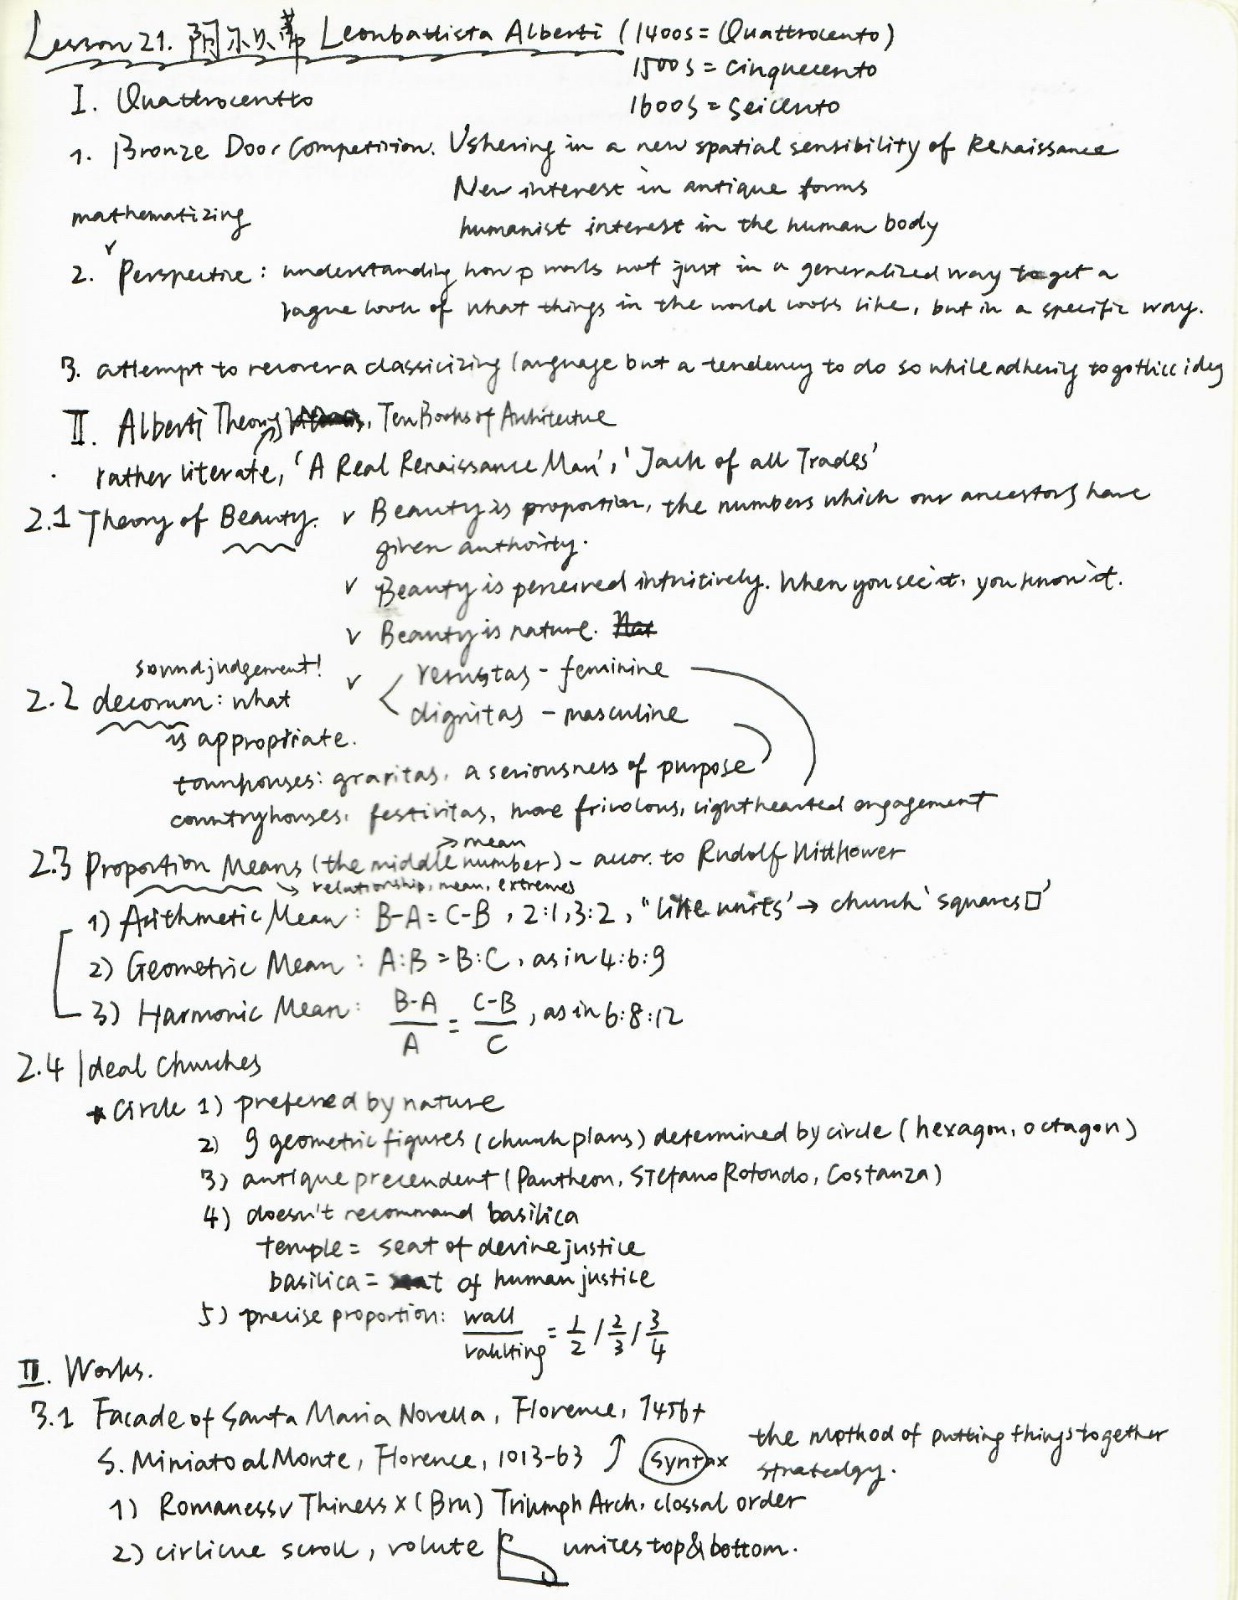 Lesson 21. 阿尔伯蒂 Leonbattista Alberti (1400s = Quattrocento)
1500s = Cinquecento
I. Quattrocentto
1600s = Seicento
1. Bronze Door Competition. Ushering in a new spatial sensibility of Renaissance
New interest in antique forms
mathematizing
humanist interest in the human body
2. Perspective: understanding how p works not just in a generalized way to get a
vague look of what things in the world looks like, but in a specific way.
3. attempt to recover a classicizing language but a tendency to do so while adhering to gothic idea
II. Alberti Theory, Ten Books of Architecture
rather literate, 'A Real Renaissance Man', 'Jack of all Trades'
2.1 Theory of Beauty. v Beauty is proportion, the numbers which our ancestors have
given authority.
v Beauty is perceived intuitively. When you see it, you know it.
v Beauty is nature.
sound judgement!
v < venustas - feminine
2.2 decorum: what
dignitas - masculine
is appropriate.
townhouses: gravitas, a seriousness of purpose
countryhouses, festivitas, more frivolous, lighthearted engagement
→ mean
2.3 Proportion Means (the middle number) - accor. to Rudolf Wittkower
→ relationship, mean, extremes
1) Arithmetic Mean: B-A = C-B, 2:1, 3:2, "like units' → church 'squares □'
2) Geometric Mean: A:B = B:C, as in 4:6:9
3) Harmonic Mean: B-A/A = C-B/C, as in 6:8:12
2.4 Ideal Churches
* Circle 1) preferred by nature
2) 9 geometric figures (church plans) determined by circle (hexagon, octagon)
3) antique precendent (Pantheon, STefano Rotondo, Costanza)
4) doesn't recommand basilica
temple = seat of devine justice
basilica = seat of human justice
5) precise proportion: wall/vaulting = 1/2 / 2/3 / 3/4
III. Works.
3.1 Facade of Santa Maria Novella, Florence, 1456+
the method of putting things together
S. Miniato al Monte, Florence, 1013-63 ↑ Syntax
stratedgy.
1) Romaness v Thiness x (Bru) Triumph Arch, clossal order
2) cirlicue scroll, volute unites top & bottom.